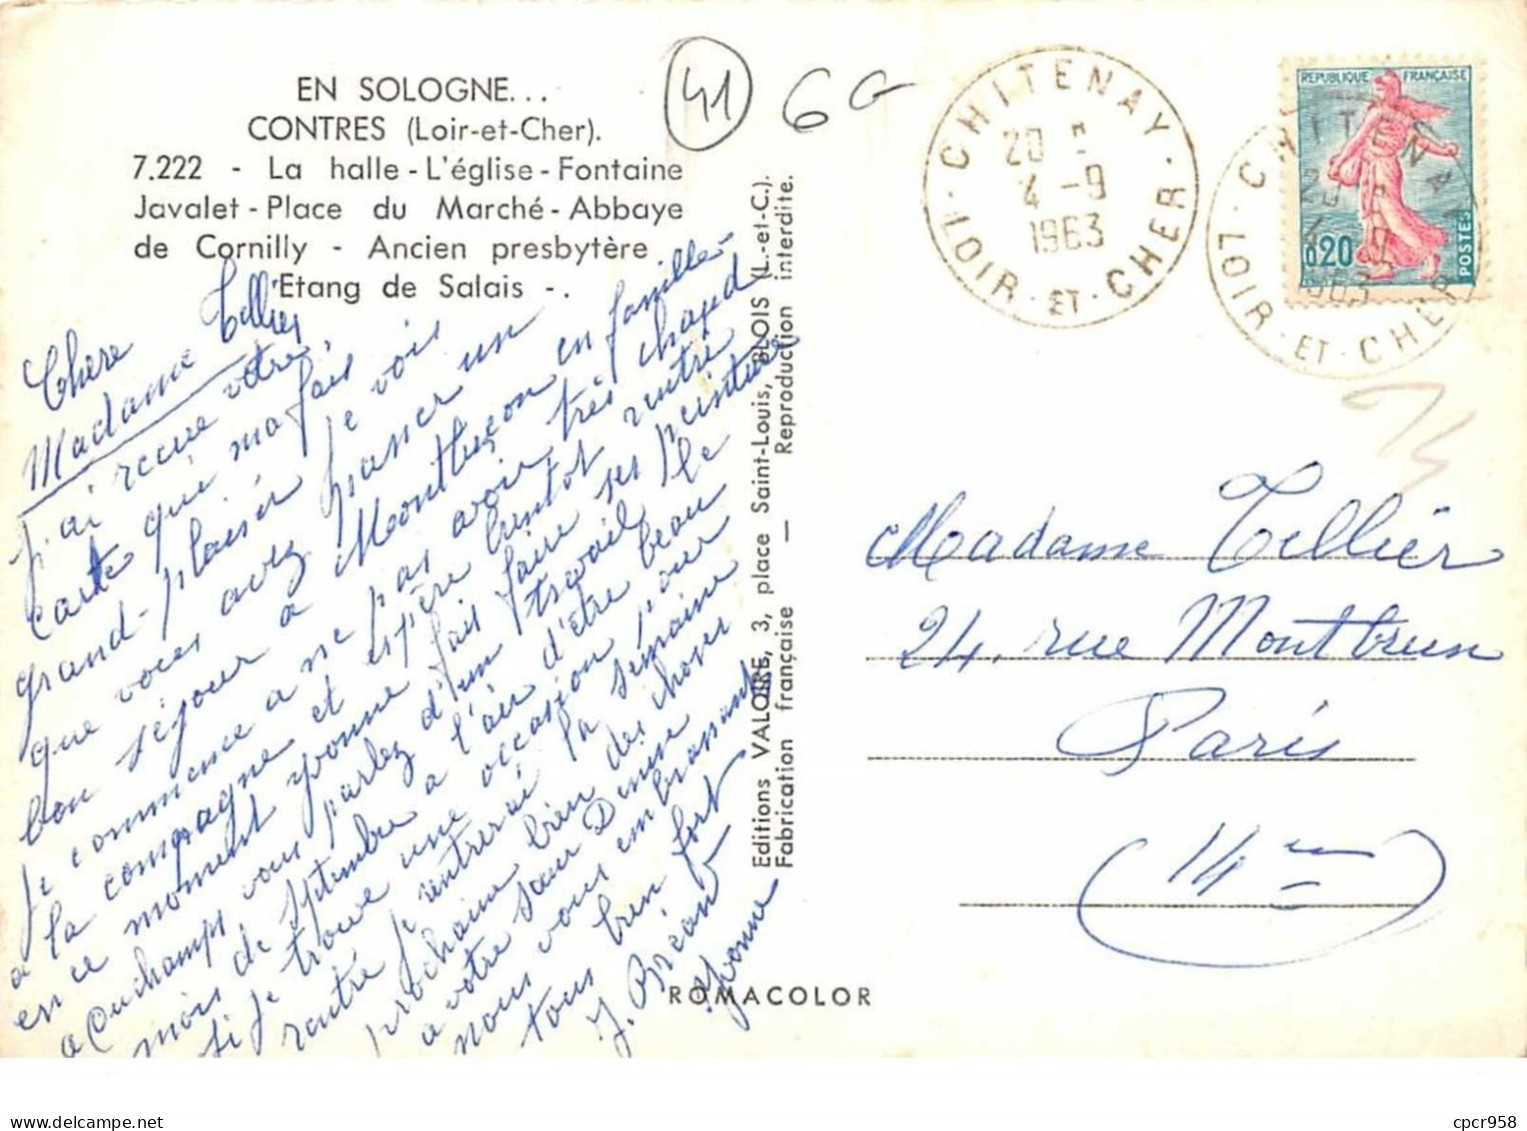 EN SOLOGNE...
CONTRES (Loir-et-Cher).
7.222 - La halle - L'église - Fontaine
Javalet - Place du Marché - Abbaye
de Cornilly - Ancien presbytère
Etang de Salais -.
41
6 G
CHITENAY
20 H
4 -9
1963
LOIR - ET - CHER
REPUBLIQUE FRANÇAISE
0,20
POSTES
CHITENAY
LOIR - ET - CHER
Chere
Madame Tellier
j'ai recue votre
carte qui ma fais
grand-plaisir je vois
que vous avez passer un
bon séjour a Montluçon en famille
je commence a ne pas avoir très chaud
a la compagne et espère bientot rentré
en ce moment yvonne fais faire ses peinture
a Couchamps vous parlez d'un travail
mois de septembre a l'air d'être beau
si je trouve une occasion pour
rentre je rentrerai la semaine
prochaine bien des choses
a votre sœur Denise
nous vous embrassant
tous bien fort
J. Bréant
yvonne
Editions VALOIRE, 3, place Saint-Louis, BLOIS (L.-et-C.).
Fabrication française — Reproduction interdite.
ROMACOLOR
Madame Tellier
24, rue Montbrun
Paris
14me
cpcr958